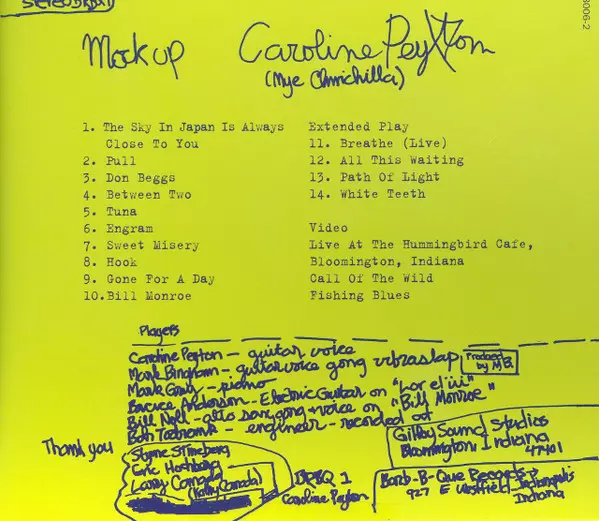 STEREO BRBQ 1
3006-2
Mock up
Caroline Peyton
(Mye Chinchilla)
1. The Sky In Japan Is Always
Close To You
2. Pull
3. Don Beggs
4. Between Two
5. Tuna
6. Engram
7. Sweet Misery
8. Hook
9. Gone For A Day
10.Bill Monroe
Extended Play
11. Breathe (Live)
12. All This Waiting
13. Path Of Light
14. White Teeth
Video
Live At The Hummingbird Cafe,
Bloomington, Indiana
Call Of The Wild
Fishing Blues
Players
Caroline Peyton - guitar voice
Mark Bingham - guitar voice gong vibraslap
Produced by MB
Mark Gray - piano
Bruce Anderson - Electric Guitar on
Bill Noll - alto sax, gong + voice on "Bill Monroe"
Bob - engineer - recorded at
Gilfoy Sound Studios
Bloomington, Indiana
47401
Thank you
Eric Hochberg
Larry Canada
(Kathy Canada)
BRBQ 1
Caroline Peyton
Barb-B-Que Records
927 E Westfield Indianapolis
Indiana